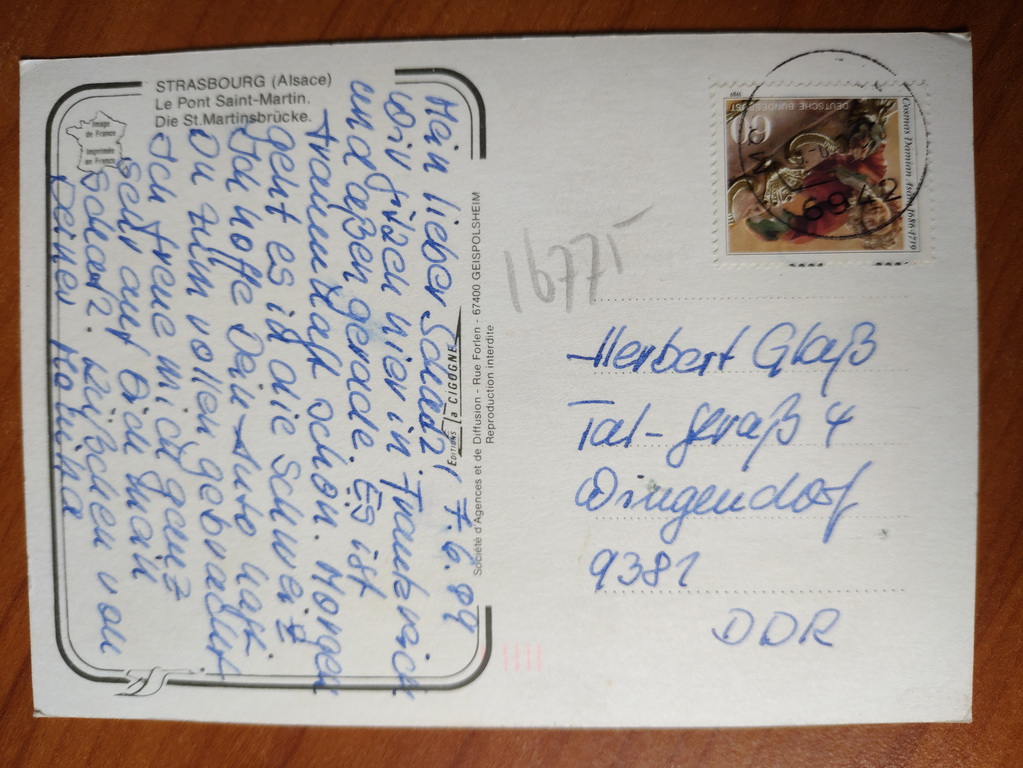 STRASBOURG (Alsace)
Le Pont Saint-Martin.
Die St.Martinsbrücke.
Image
de France
Imprimée
en France
Mein lieber Schatz! 7.6.89
Wir sitzen hier in Frankreich
und aßen gerade. Es ist
traumhaft schon. Morgen
geht es in die Schweiz
Ich hoffe Dein Auto hast
Du zum vollen gebracht
Ich freue mich ganz
sehr auf Dich mein
Schatz. Küßchen von
Deiner
EDITIONS la CIGOGNE
Société d'Agences et de Diffusion - Rue Forlen - 67400 GEISPOLSHEIM
Reproduction interdite
16775
DEUTSCHE BUNDESPOST
60
Cosmas Damian Asam 1686-1739
Herbert Glaß
Tal-straß 4
Dingendorf
9381
DDR